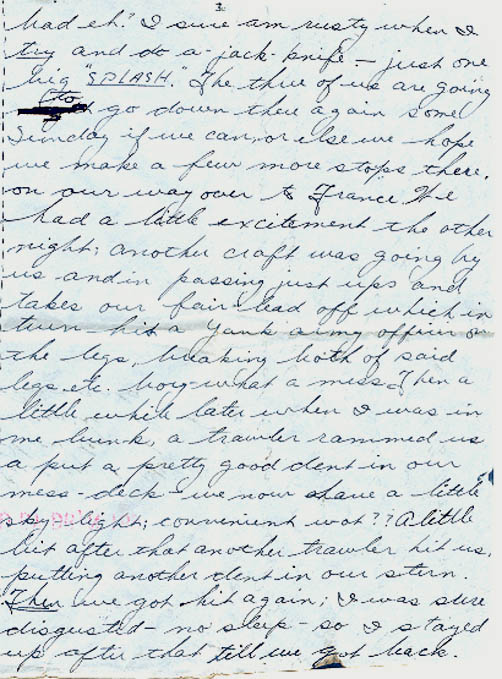 3.
bad eh? I sure am rusty when I
try and do a jack-knife - just one
big "SPLASH." The three of us are going
to go down there again some
Sunday if we can, or else we hope
we make a few more stops there,
on our way over to France We
had a little excitement the other
night; another craft was going by
us and in passing just ups and
takes our fair-lead off which in
turn hit a Yank army officer on
the legs, breaking both of said
legs. etc. boy - what a mess. Then a
little while later when I was in
me bunk, a trawler rammed us
a put a pretty good dent in our
mess-deck - we now have a little
sky-light; convenient wot?? A little
bit after that another trawler hit us,
putting another dent in our stern.
Then we got hit again; I was sure
disgusted - no sleep - so I stayed
up after that till we got back.